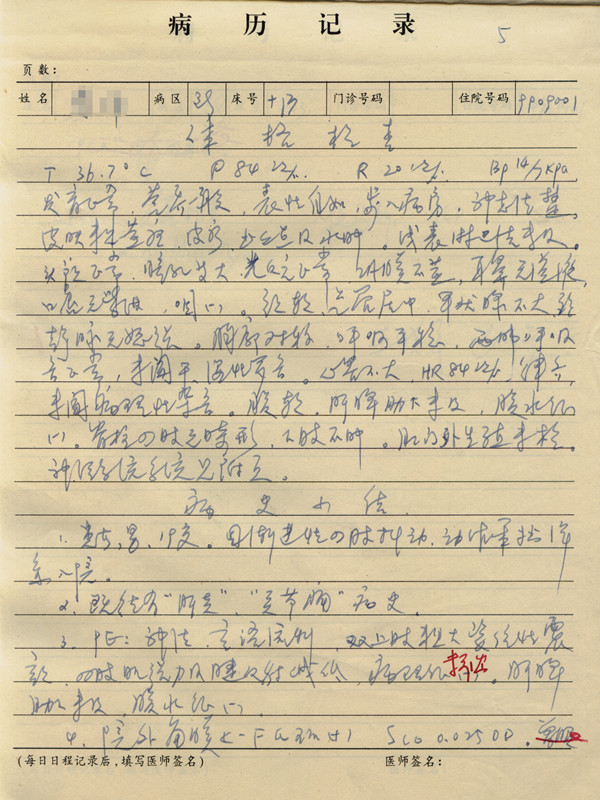 病历记录
5
页数：
姓名 病区 床号 +13 门诊号码 住院号码 9909001
体格检查
T 36.7°C P 84次/分 R 20次/分 Bp 14/9 Kpa
发育正常，营养一般，表情自如，步入病房，神志清楚。
皮肤未见黄疸、皮疹、出血点及水肿。浅表淋巴结未及。
头颅正常，瞳孔等大，光反应正常，巩膜不黄，耳鼻无溢液，
口唇无紫绀，咽(-)。颈软，气管居中，甲状腺不大，颈
静脉无怒张。胸廓对称，呼吸平稳，两肺呼吸
音正常，未闻干、湿性罗音。心界不大，HR 84次/分，律齐，
未闻病理性杂音。腹软，肝脾肋下未及，腹水征
(-)。脊柱四肢无畸形，下肢不肿。肛门外生殖未检。
神经系统见附页。
病史小结
1. 男，19岁。因渐进性四肢抖动、动作笨拙1年
余入院。
2. 既往有“肝炎”、“关节痛”病史。
3. PE：神清，言语流利，双上肢粗大姿位性震
颤，四肢肌张力及腱反射减低，病理征未引出。肝脾
肋下未及，腹水征(-)
4. 院外角膜K-F 环(+) 0.025 OD.
(每日日程记录后，填写医师签名) 医师签名：